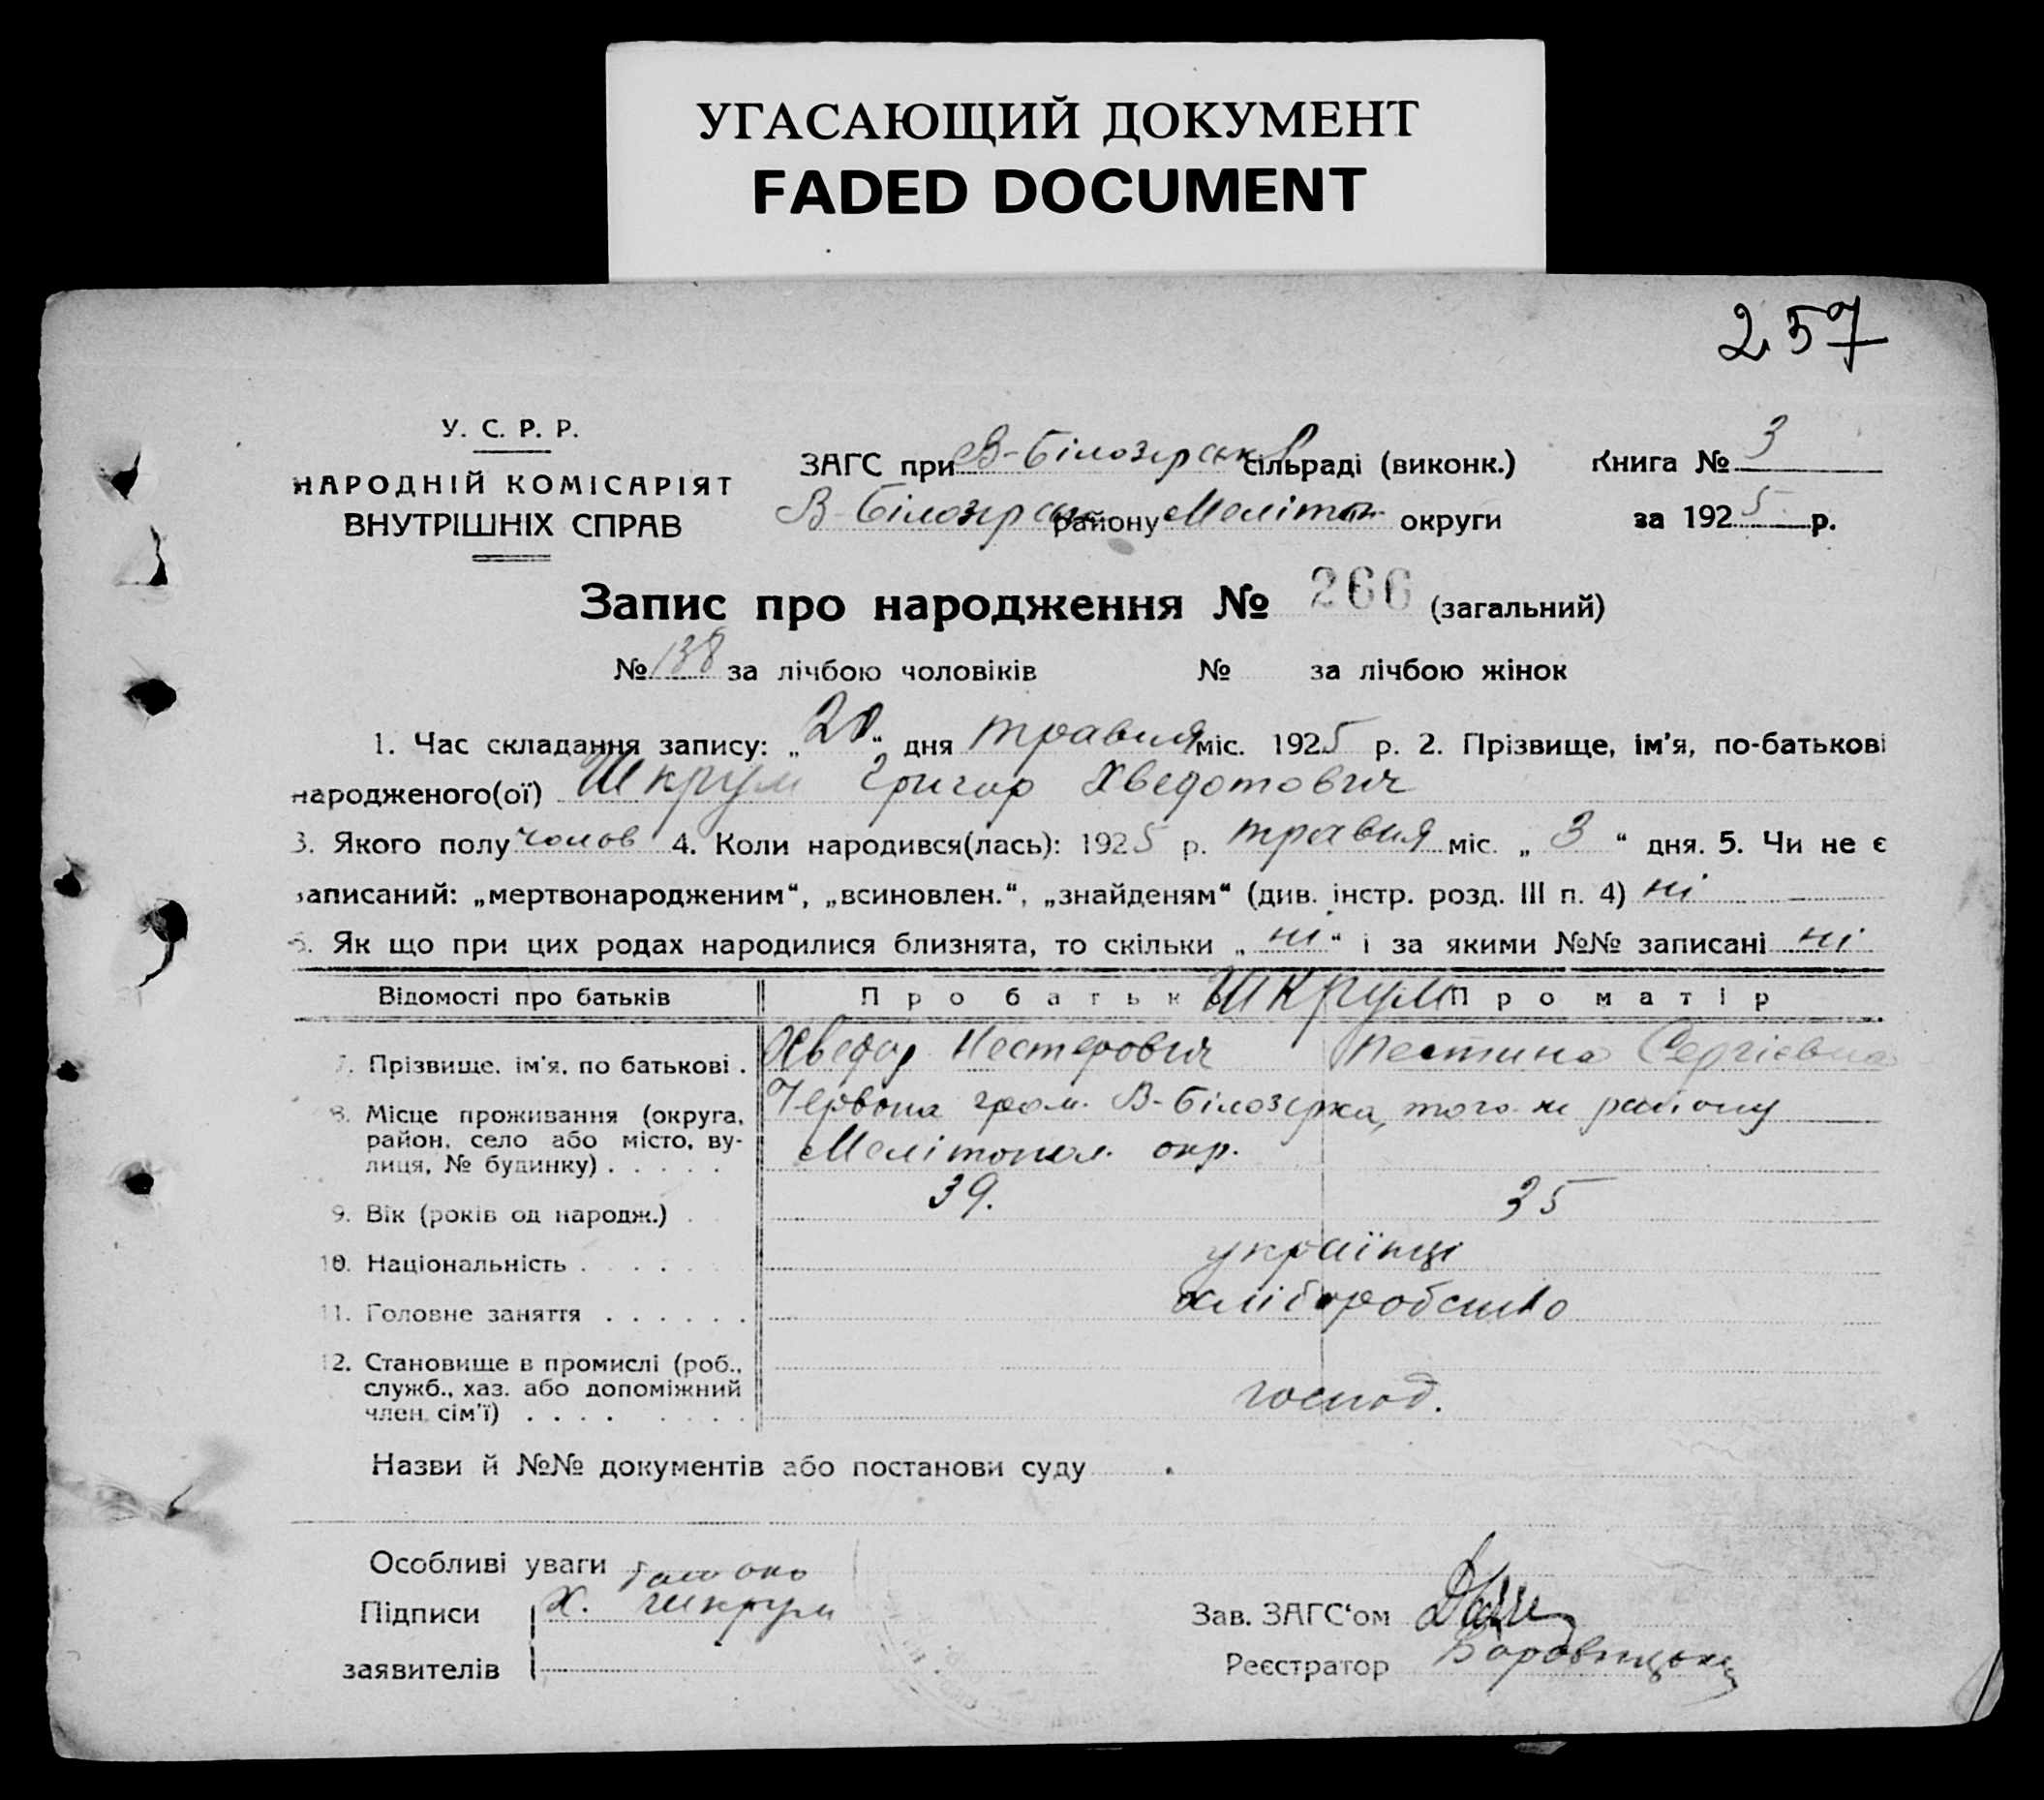 УГАСАЮЩИЙ ДОКУМЕНТ
FADED DOCUMENT
257
У. С. Р. Р.
НАРОДНІЙ КОМІСАРІЯТ
ВНУТРІШНІХ СПРАВ
ЗАГС при В-Білозірськ сільраді (виконк.) Книга № 3
В-Білозірськ району Меліт округи за 1925 р.
Запис про народження № 266 (загальний)
№ 138 за лічбою чоловіків № за лічбою жінок
1. Час складання запису: „20“ дня травня міс. 1925 р. 2. Прізвище, ім'я, по-батькові
народженого(ої) Шкрум Григор Хведотович
3. Якого полу чолов 4. Коли народився(лась): 1925 р. травня міс. „ 3 “ дня. 5. Чи не є
записаний: „мертвонародженим“, „всиновлен.“, „знайденям“ (див. інстр. розд. III п. 4) ні
6. Як що при цих родах народилися близнята, то скільки „ ні “ і за якими №№ записані ні
Відомості про батьків Про батька Шкрум Про матір
7. Прізвище, ім'я, по батькові . Хведор Нестерович Пестина Сергієвна
8. Місце проживання (округа, район, село або місто, вулиця, № будинку) . . . . . Червона гром. В-Білозірка, того ж району
Мелітопол. окр.
9. Вік (років од народж.) . 39. 35
10. Національність . . . . . . українці
11. Головне заняття . . . . . . хліборобство
12. Становище в промислі (роб., служб., хаз. або допоміжний член. сім'ї) . . . . . . . . господ.
Назви й №№ документів або постанови суду
Особливі уваги
Підписи Х. Шкрум
заявителів
Зав. ЗАГС‘ом
Реєстратор